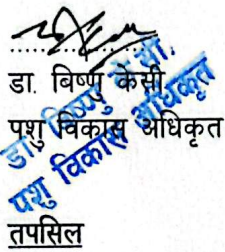 डा. बिष्णु केसी
पशु विकास अधिकृत
डा. बिष्णु के.सी.
पशु विकास अधिकृत
तपसिल